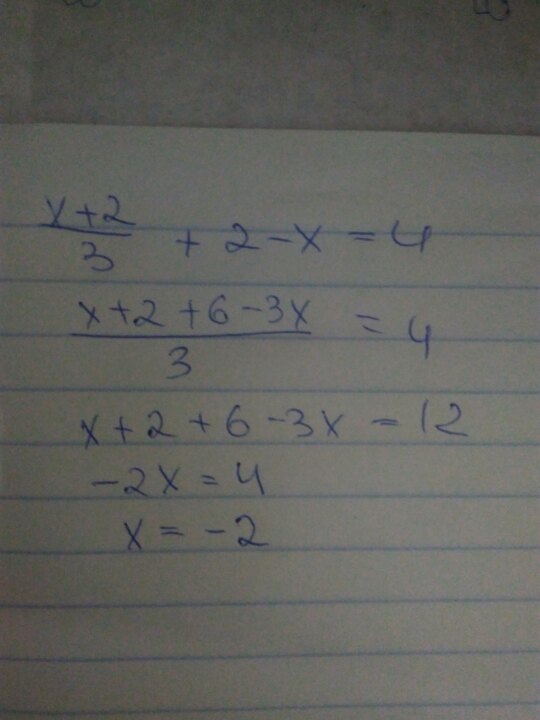 x+2/3 + 2-x = 4
x+2+6-3x/3 = 4
x+2+6-3x = 12
-2x = 4
x = -2